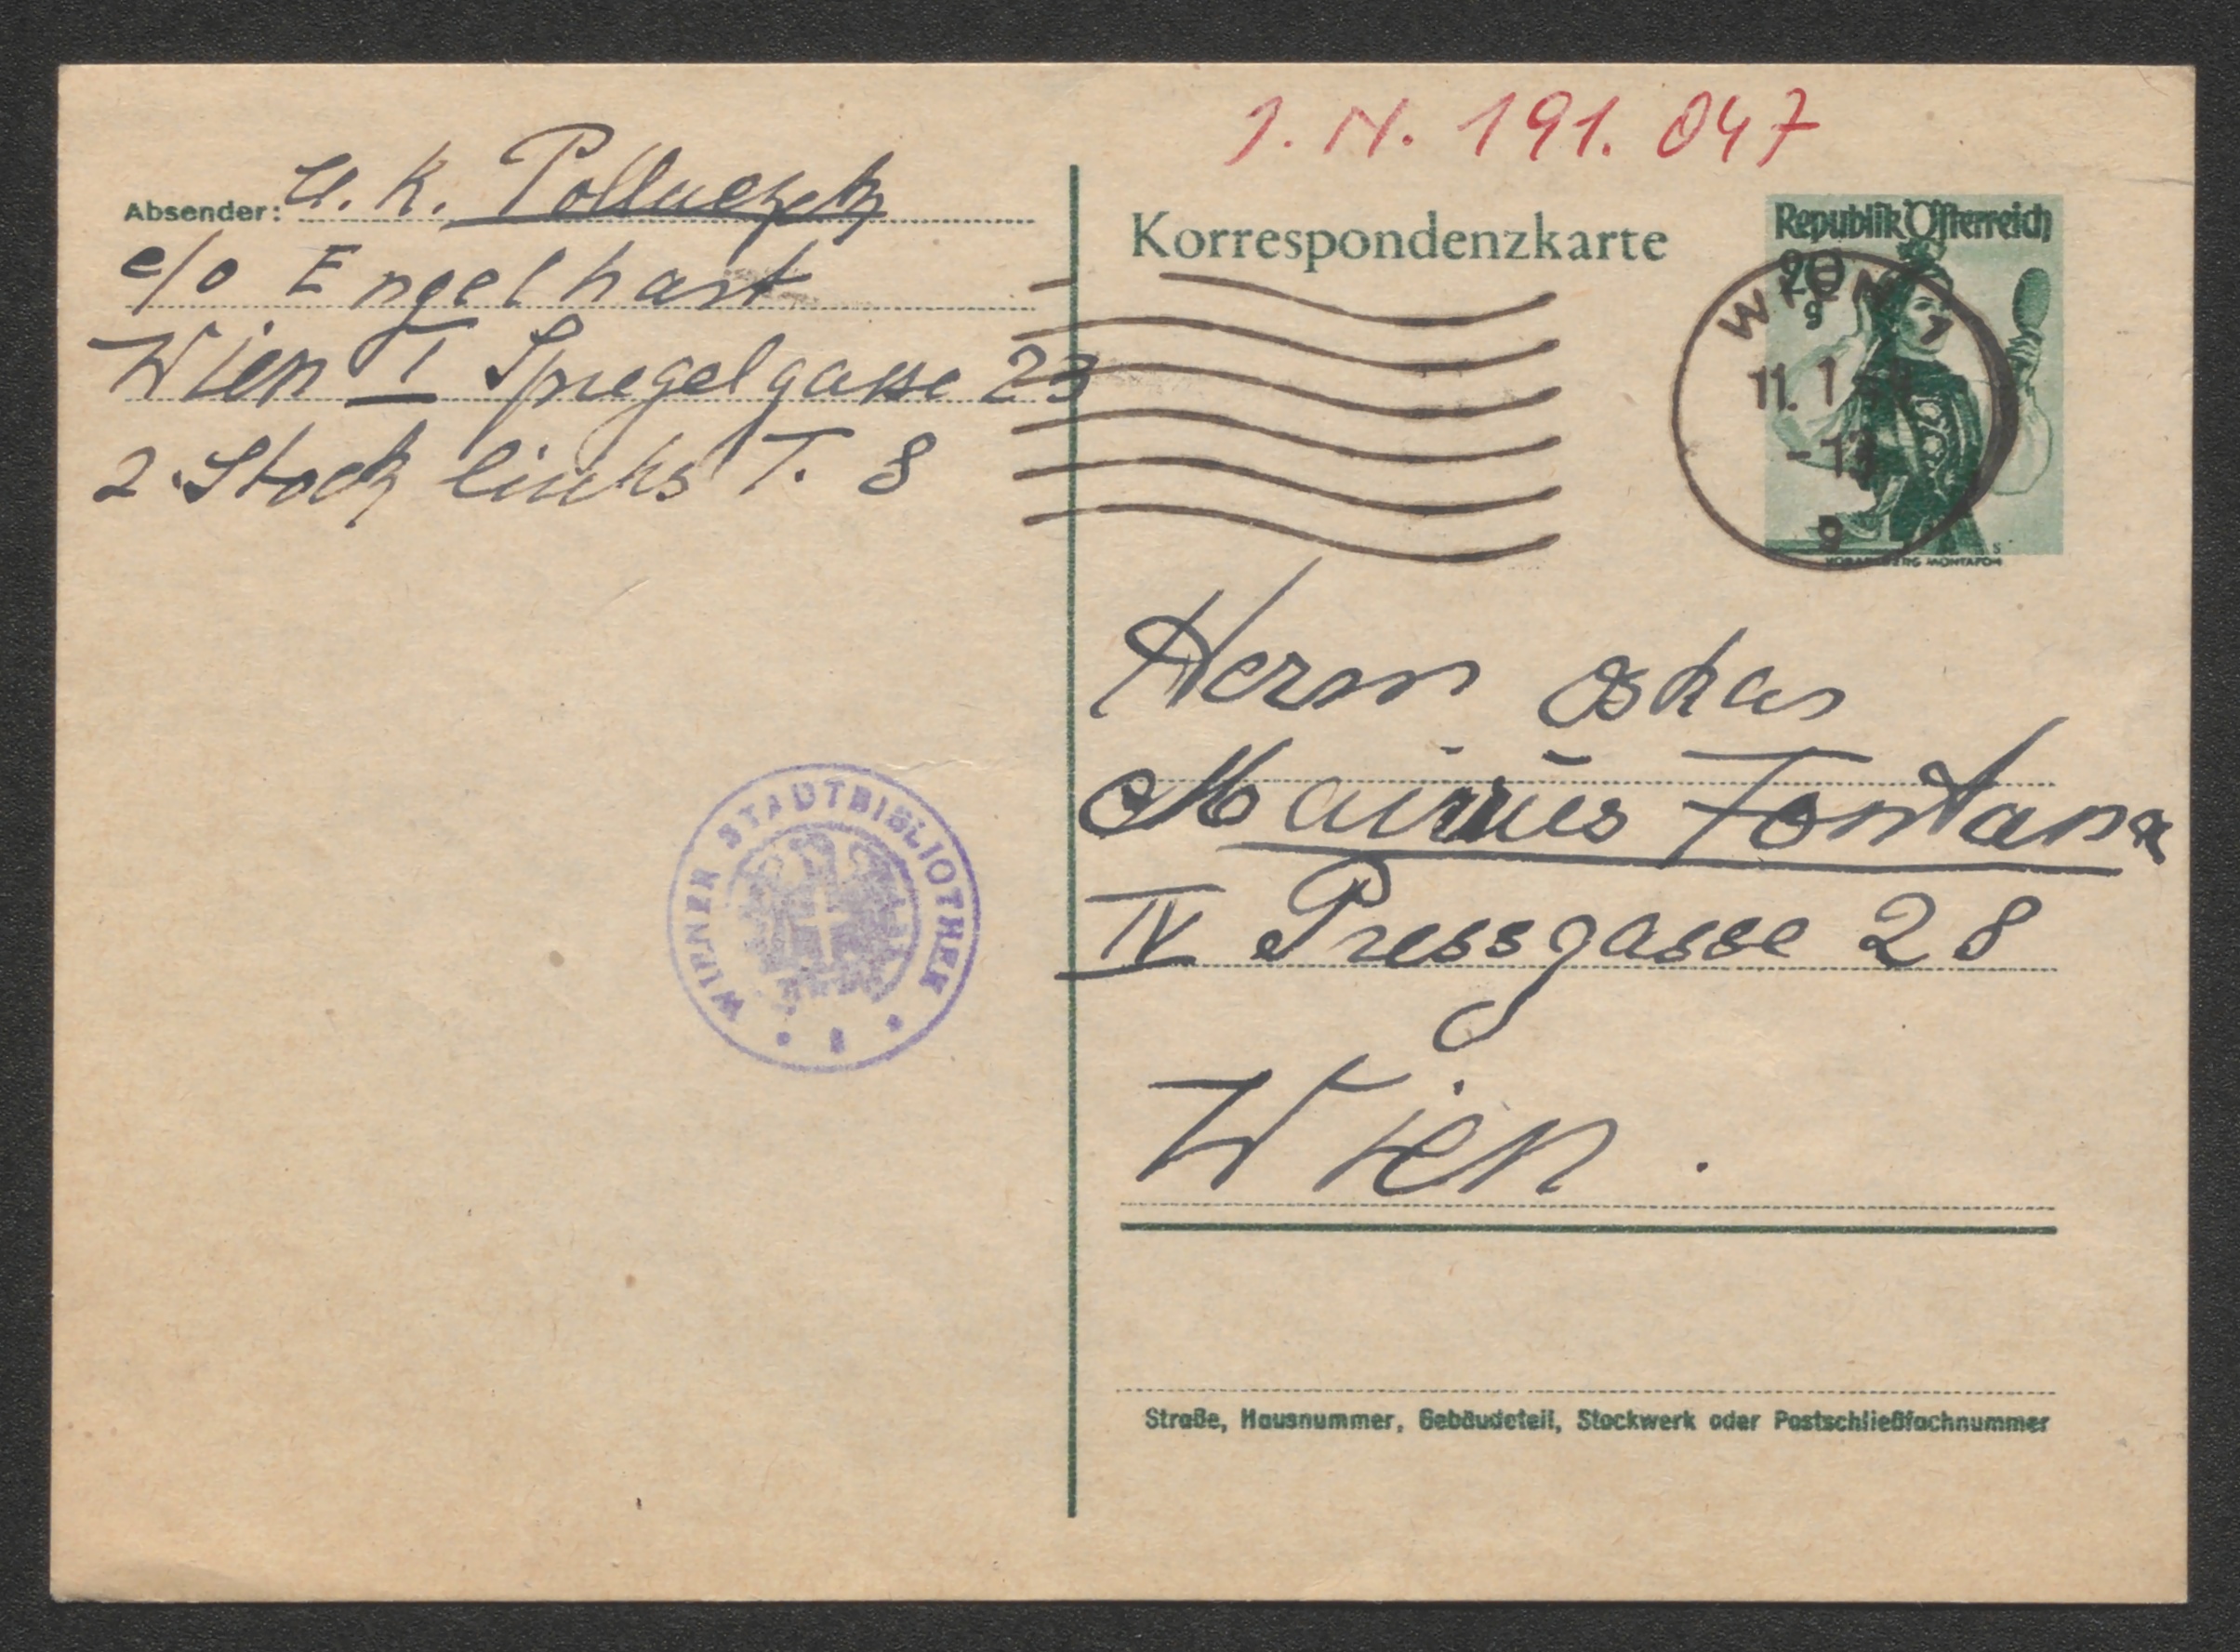 J. N. 191.047
Absender:
c/o Engelhart
Wien I Spiegelgasse 23
2. Stock links T. 8
Korrespondenzkarte
Republik Österreich
WIEN 1
11. 1
9
VORARLBERG MONTAFON
WIENER STADTBIBLIOTHEK
Herrn Oskar
Maurus Fontana
IV Pressgasse 28
Wien.
Straße, Hausnummer, Gebäudeteil, Stockwerk oder Postschließfachnummer